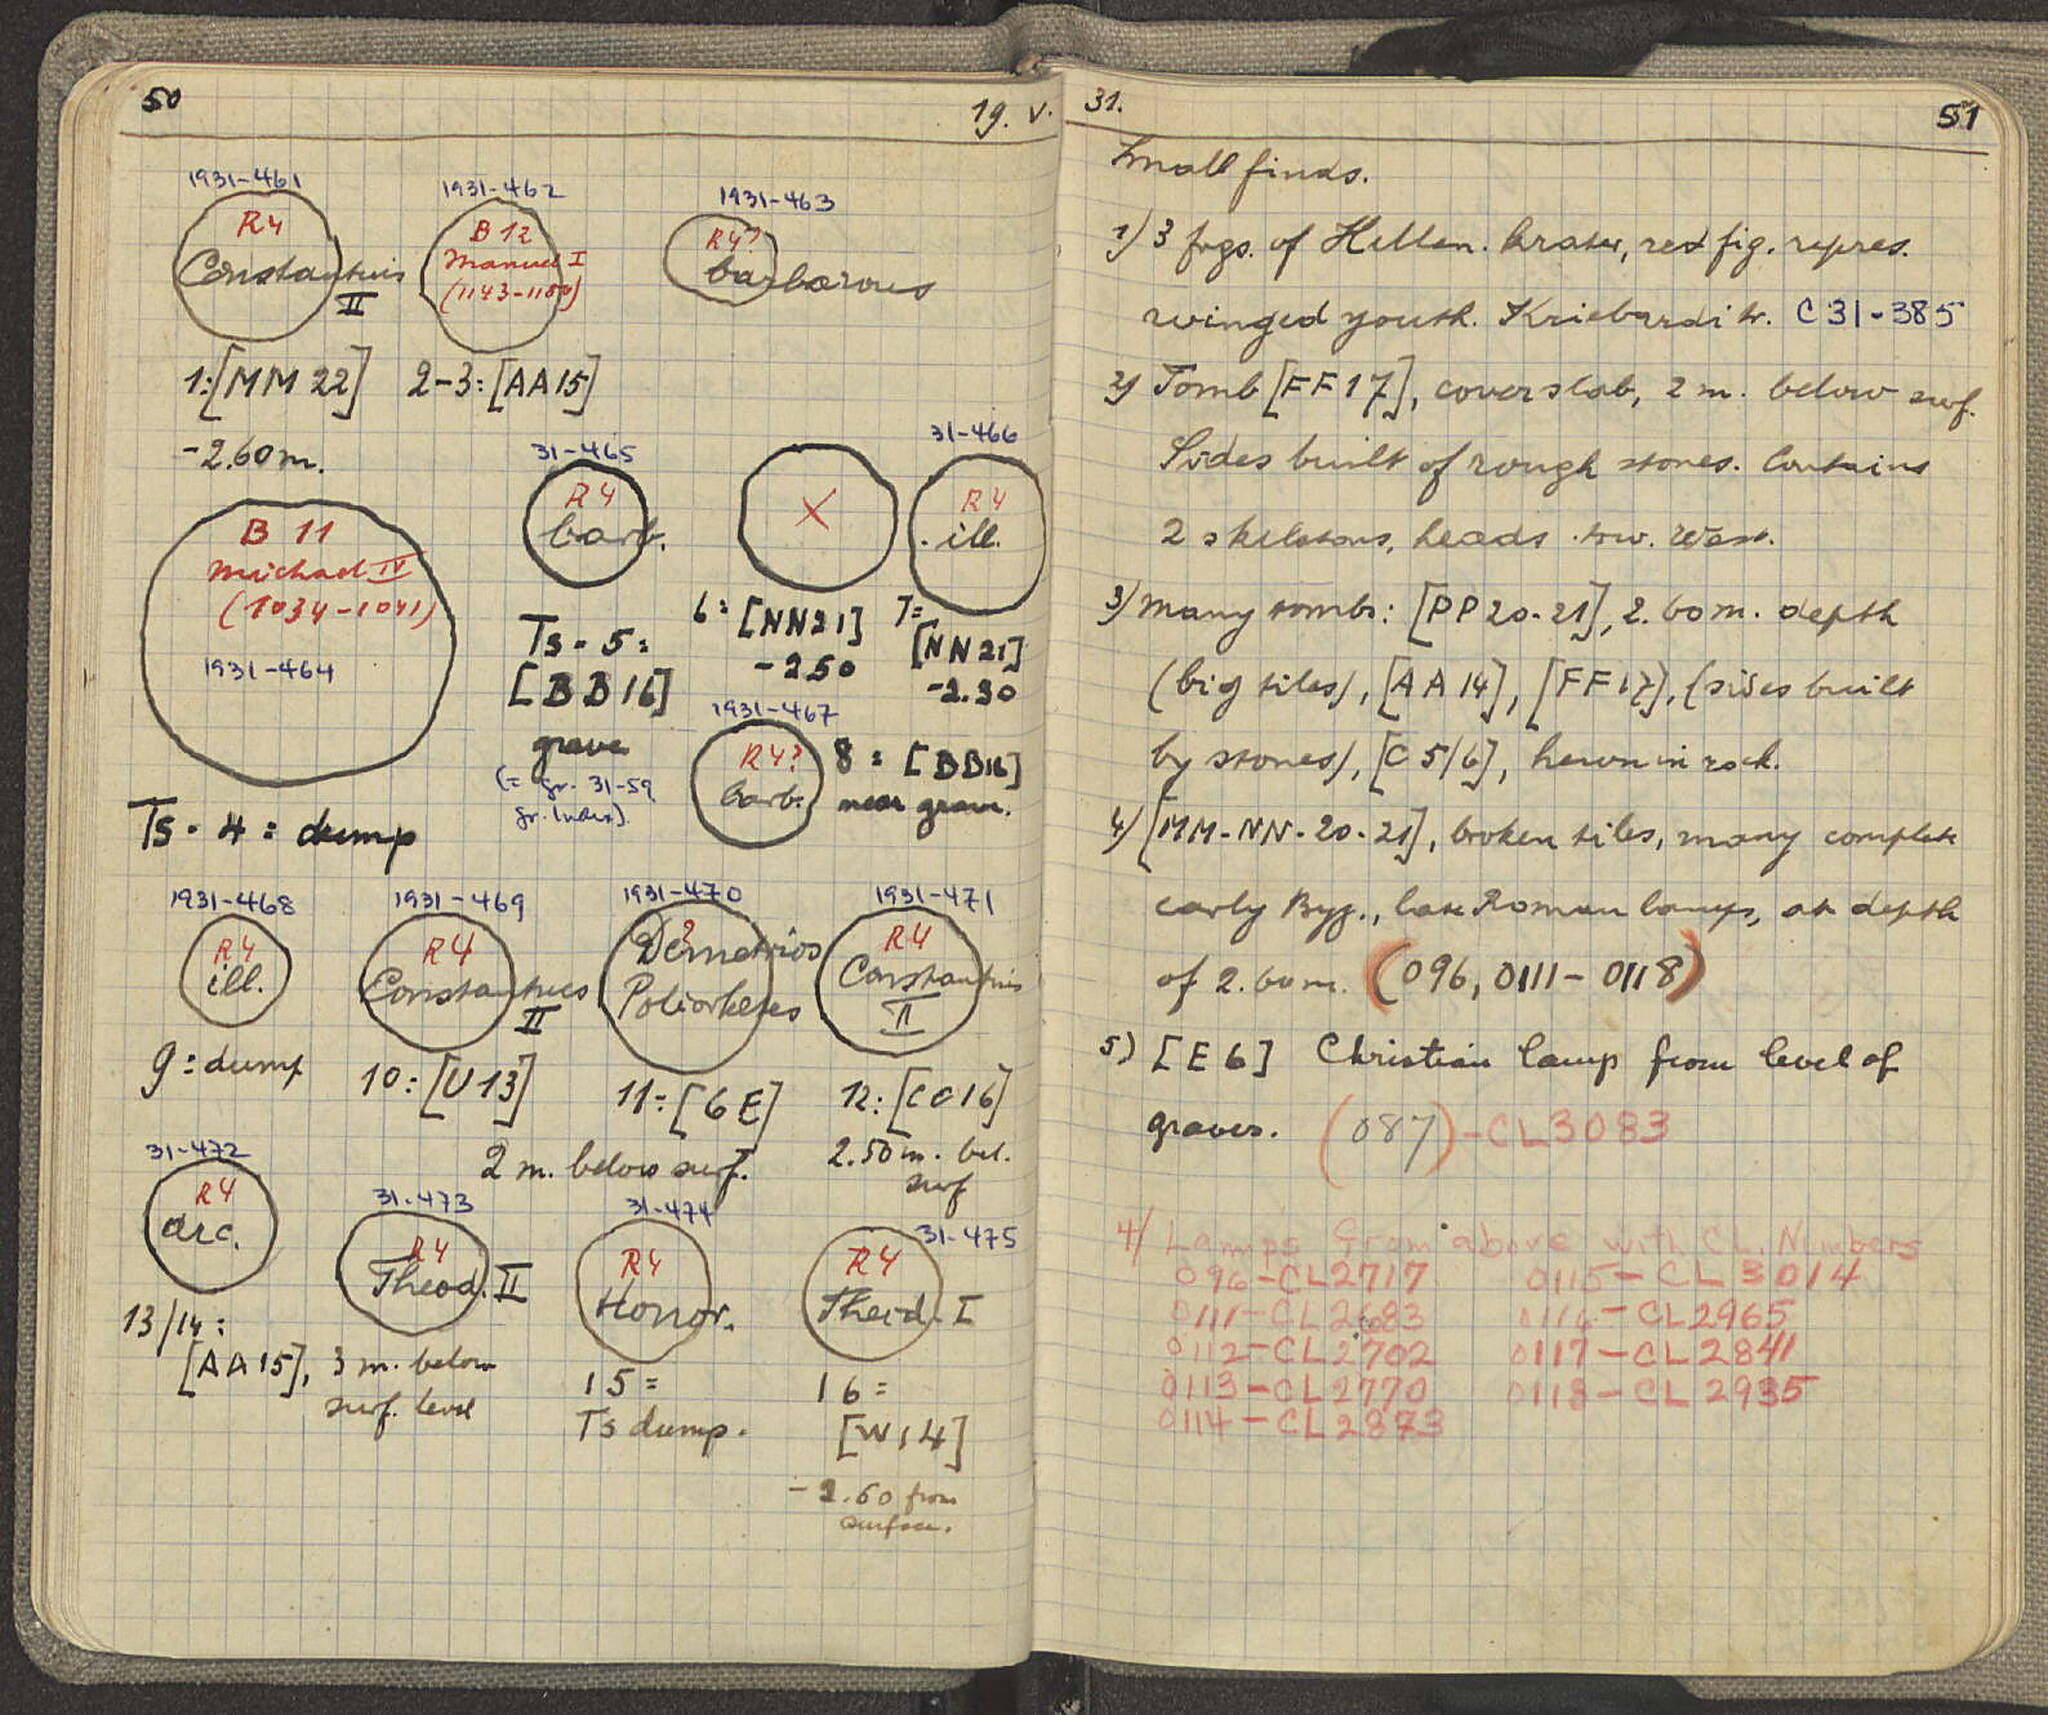 50
19. V.
1931-461
1931-462
1931-463
R4
Constantius
II
B 12
Manuel I
(1143-1180)
R4?
barbarous
1: [MM 22]
2-3: [AA 15]
-2.60 m.
31-465
31-466
B 11
Michael IV
(1034-1041)
1931-464
R4
barb.
X
R4
ill.
Ts-5:
[BB16]
grave
(= gr. 31-59
gr. Index)
6: [NN21]
-2.50
7=
[NN21]
-2.30
1931-467
R4?
barb.
8: [BB16]
near grave.
Ts-4: dump
1931-468
1931-469
1931-470
1931-471
R4
ill.
R4
Constantius
II
?
Demetrios
Poliorketes
R4
Constantius
II
9: dump
10: [U13]
11: [6E]
2 m. below surf.
12: [CC16]
2.50 m. bel.
surf
31-472
31-473
31-474
31-475
R4
arc.
R4
Theod. II
R4
Honor.
R4
Theod. I
13/14:
[AA15], 3 m. below
surf. level
15=
Ts dump.
16=
[W14]
-2.60 from
surface.
31.
51
Small finds.
1) 3 frgs. of Hellen. krater, red fig. repres.
winged youth. C31-385
2) Tomb [FF17], coverslab, 2 m. below surf.
Sides built of rough stones. Contains
2 skeletons, heads tow. West.
3) Many tombs: [PP20-21], 2.60 m. depth
(big tiles), [AA14], [FF17], (sides built
by stones), [C5/6], hewn in rock.
4) [MM-NN-20-21], broken tiles, many complete
early Byz., late Roman lamps, at depth
of 2.60 m. (096, 0111-0118)
5) [E6] Christian lamp from level of
graves. (087)-CL3083
4/ Lamps from above with CL. Numbers
096-CL2717 0115-CL3014
0111-CL2683 0116-CL2965
0112-CL2702 0117-CL2841
0113-CL2770 0118-CL2935
0114-CL2873